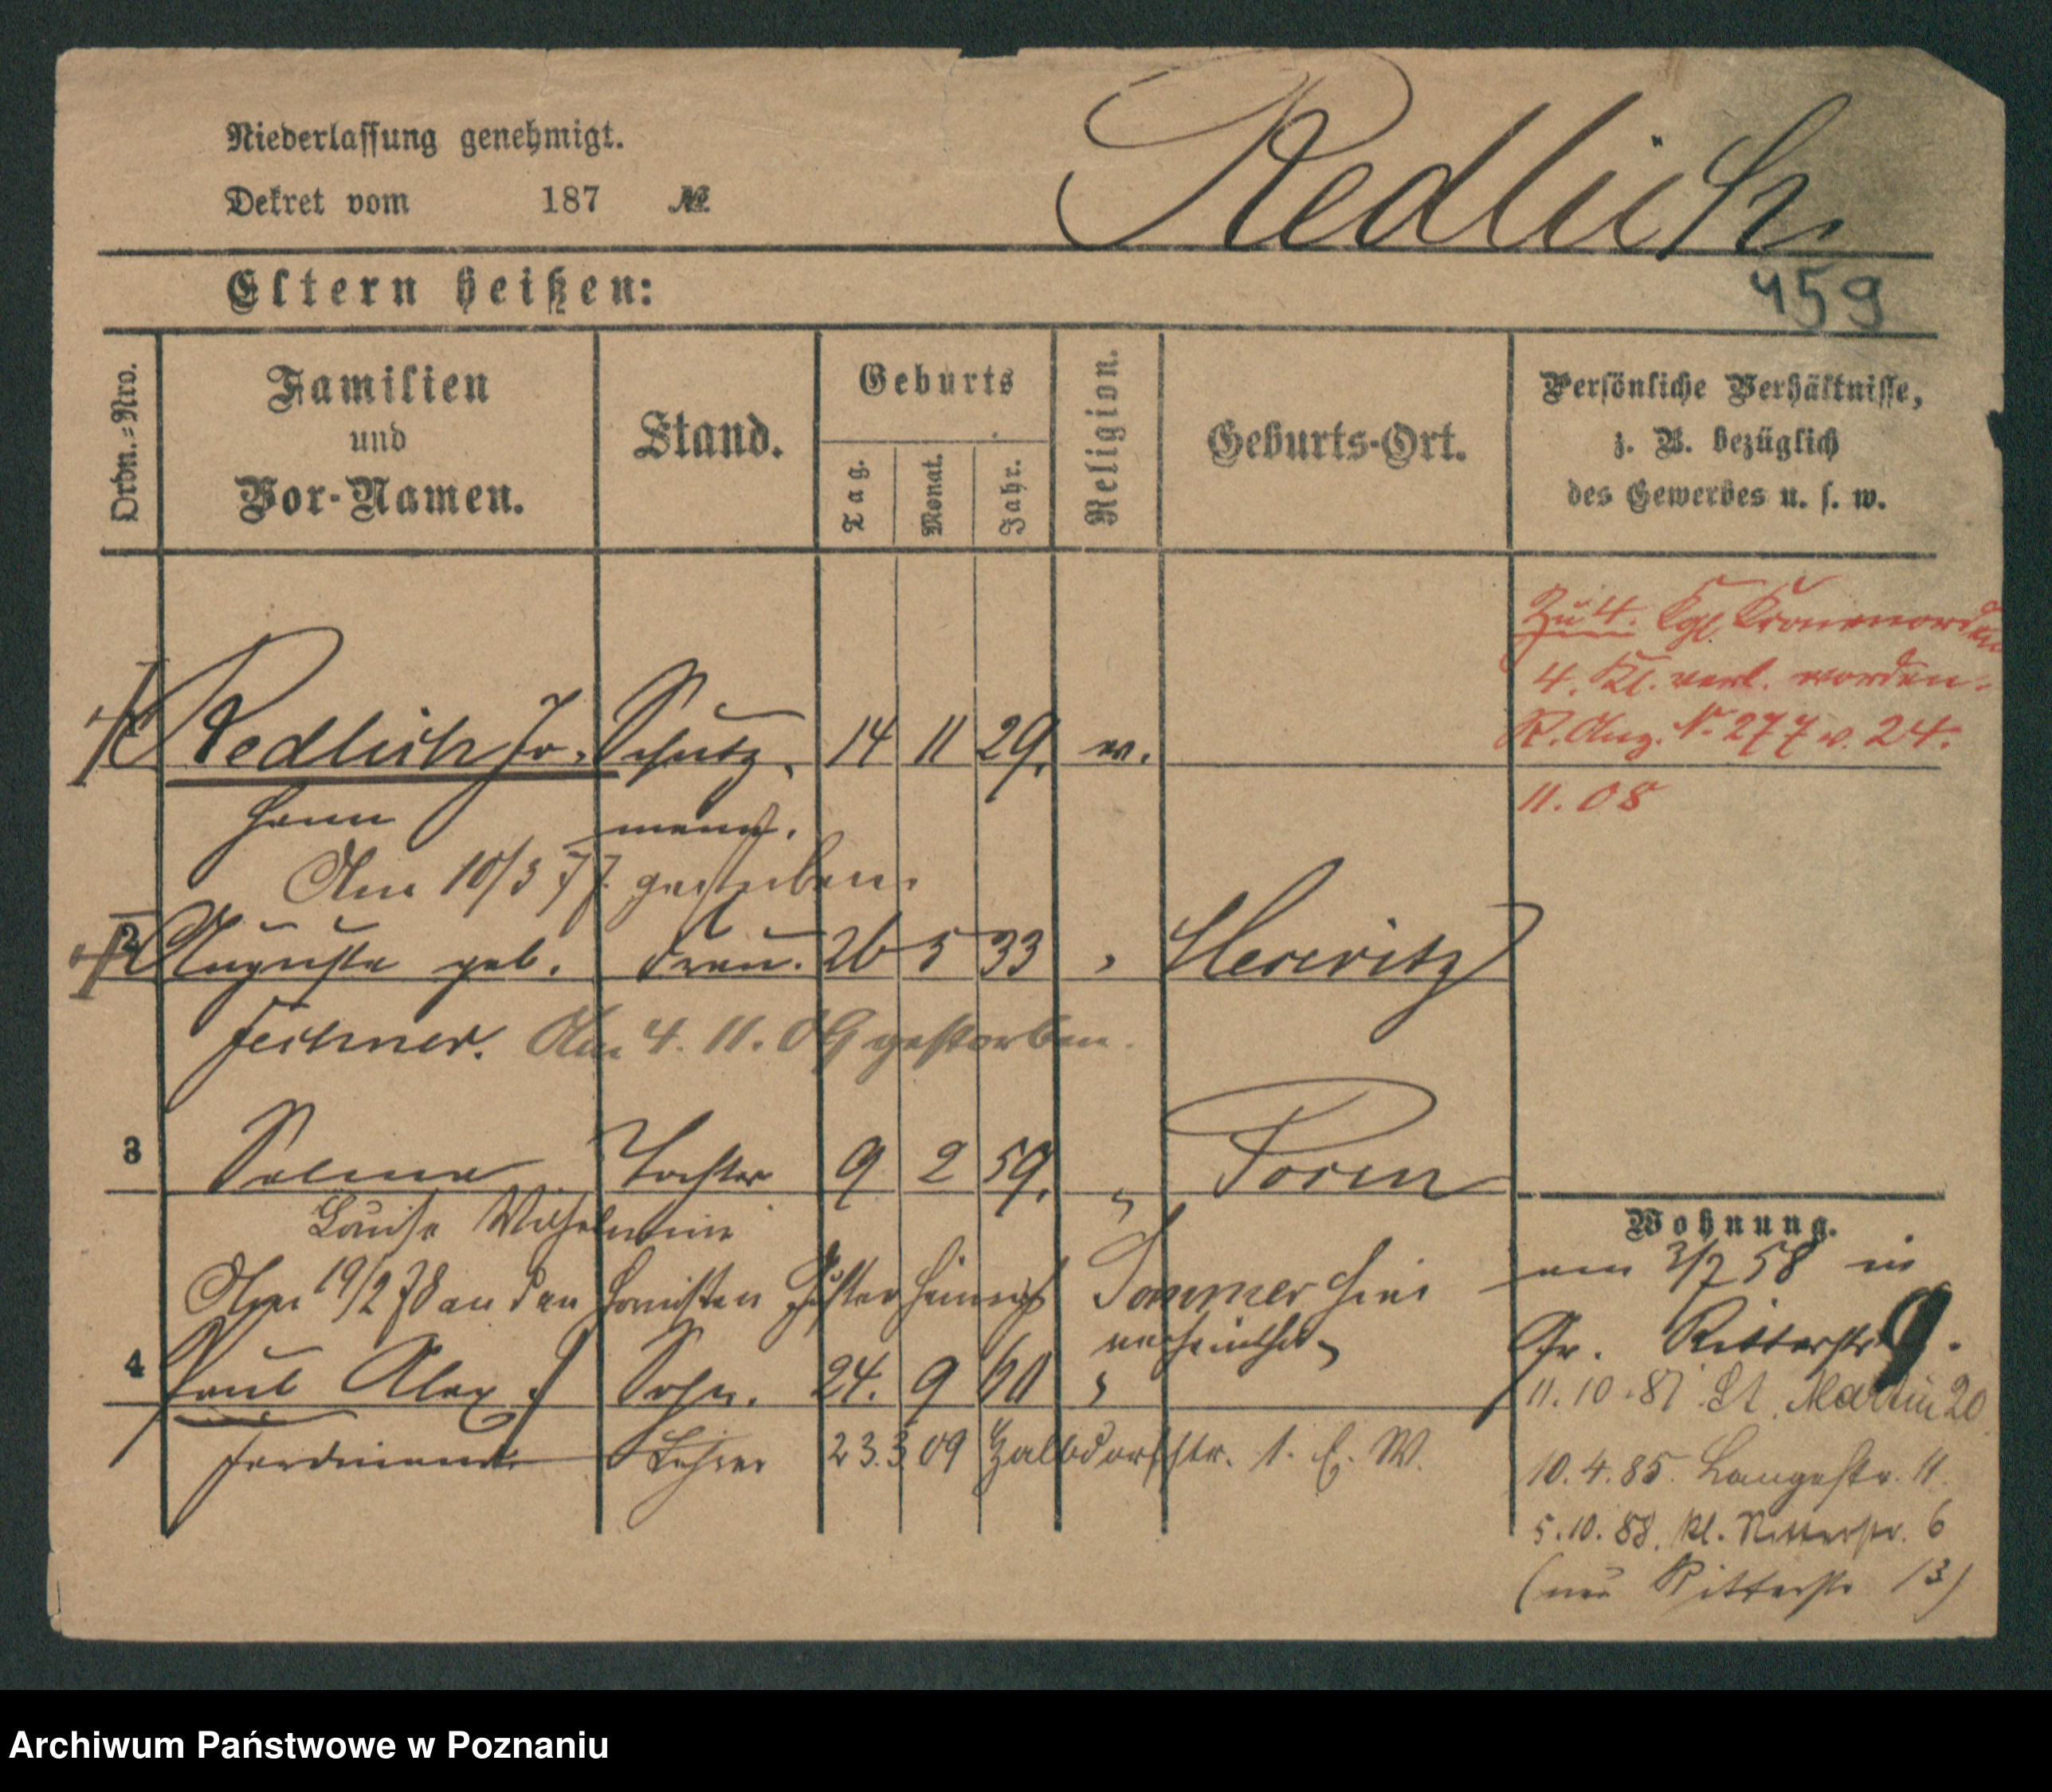 Niederlassung genehmigt.
Dekret vom 187 №
Redlich
459
Eltern heißen:
Ordn.=Nro.
Familien und Vor-Namen.
Stand.
Geburts
Tag.
Monat.
Jahr.
Religion.
Geburts-Ort.
Persönliche Verhältnisse,
z. B. bezüglich
des Gewerbes u. s. w.
Zu 4. Kgl. Kronenorden
4. Kl. verl. worden.
R. Anz. Nr 277 v. 24.
11. 08
Redlich Jo- Schutz- 14 11 29. ev.
hann mann.
Am 10/3 77 gestorben.
2 Auguste geb. Frau. 26 5 33 "
Fechner. Am 4. 11. 09 gestorben.
3 Selma Tochter 9 2 59. " Posen
Louise Wilhelmine
Am 19/2 78 an den Gustav Heinrich Sommer hier
verheirathet
4 Paul Alex Sohn. 24. 9 60 "
Ferdinand Lehrer 23. 3 09 str. 1. E. W.
Wohnung.
am 3/7 58 in
Gr. Ritterstr 9.
11. 10. 81 St. Martin 20
10. 4. 85. Langestr. 11.
5. 10. 88. Kl. Ritterstr. 6
(neu Ritterstr 13)
Archiwum Państwowe w Poznaniu